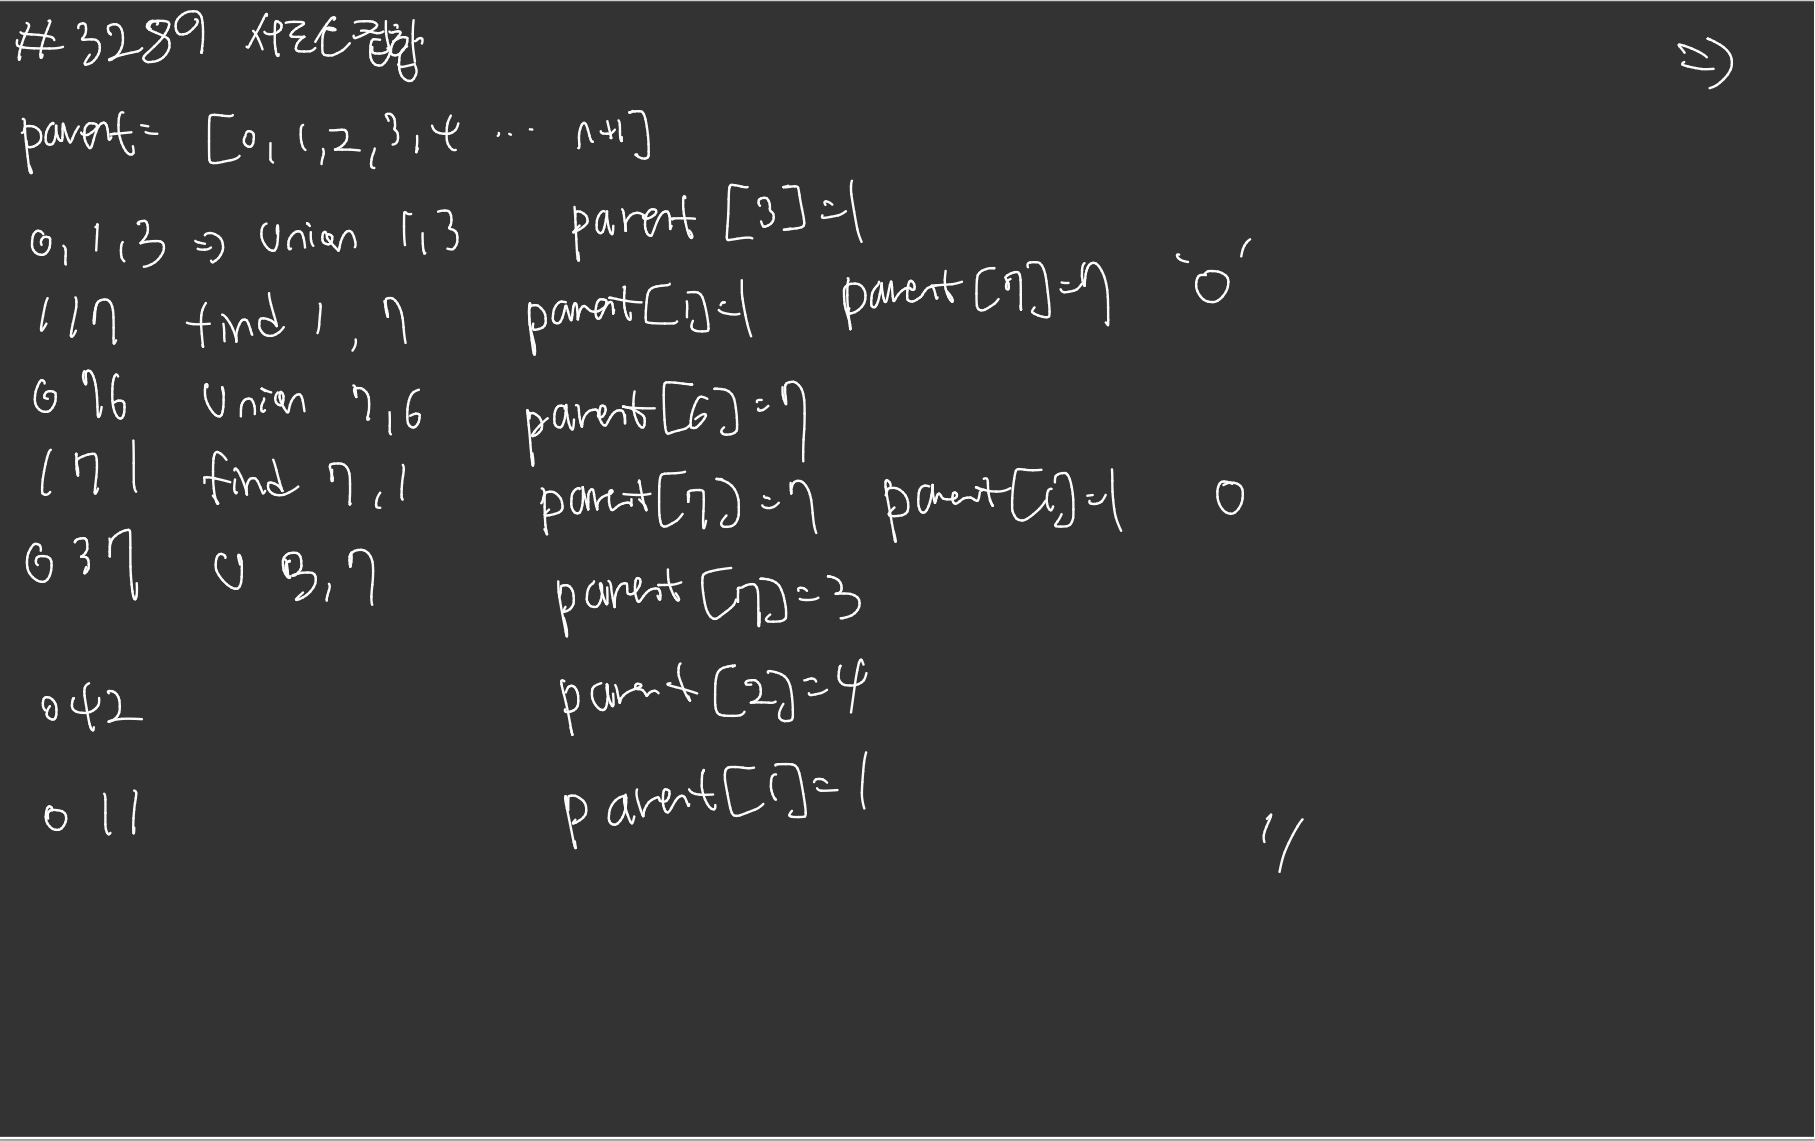 #3289 서로소집합
⇒
parent= [0, 1, 2, 3, 4 ... n+1]
0, 1, 3 ⇒ union 1, 3 parent [3]=1
1 1 7 find 1, 7 parent[1]=1 parent[7]=7 '0'
0 7 6 union 7, 6 parent[6]=7
1 7 1 find 7, 1 parent[7]=7 parent[1]=1 0
0 3 7 U 3, 7 parent [7]=3
0 4 2 parent [2]=4
0 1 1 parent[1]=1